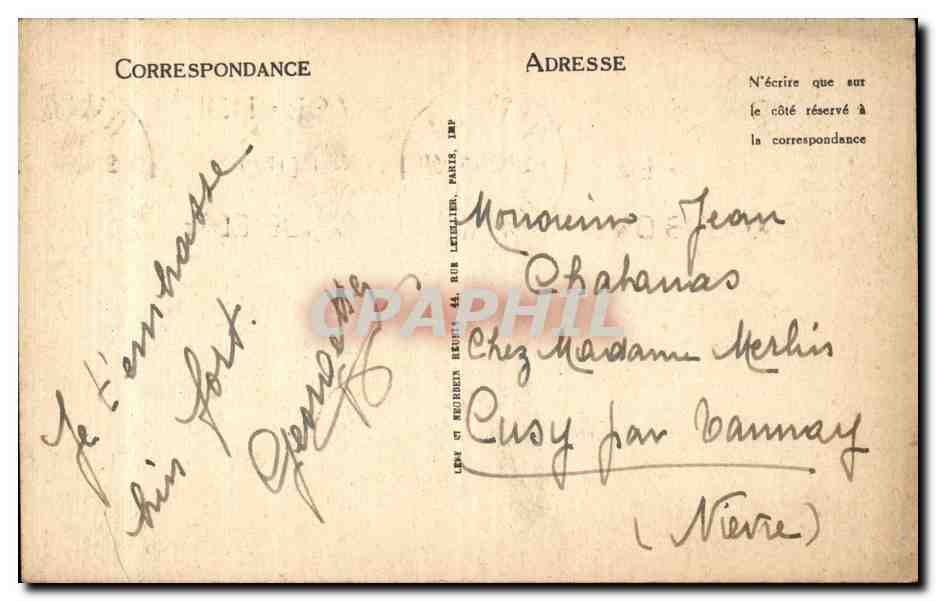 CORRESPONDANCE
ADRESSE
N'écrire que sur
le côté réservé à
la correspondance
Je t'embrasse
bien fort.
LEVY ET NEURDEIN RÉUNIS 44, RUE LETELLIER, PARIS, IMP
Monsieur Jean
Chabanas
Chez Madame Merlin
Cusy par Tannay
(Nièvre)
CPAPHIL